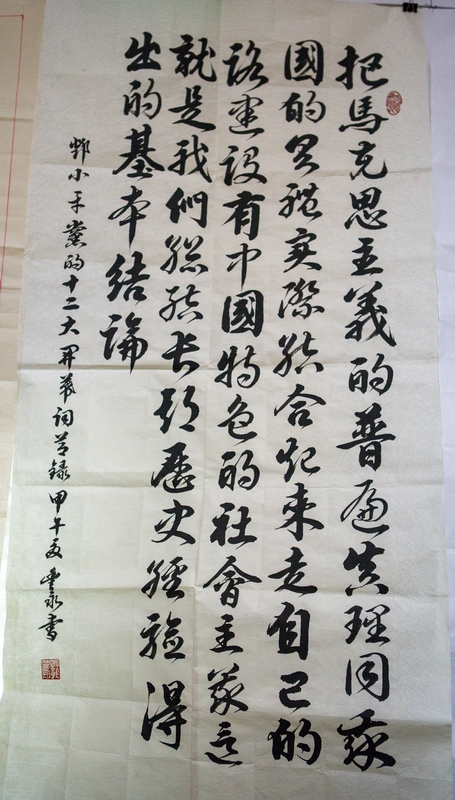 把馬克思主義的普遍真理同我
國的具體實際結合起來走自己的
路建設有中國特色的社會主義這
就是我們總結長期歷史經驗得
出的基本結論
鄧小平黨的十二大開幕詞节録甲午夏永書